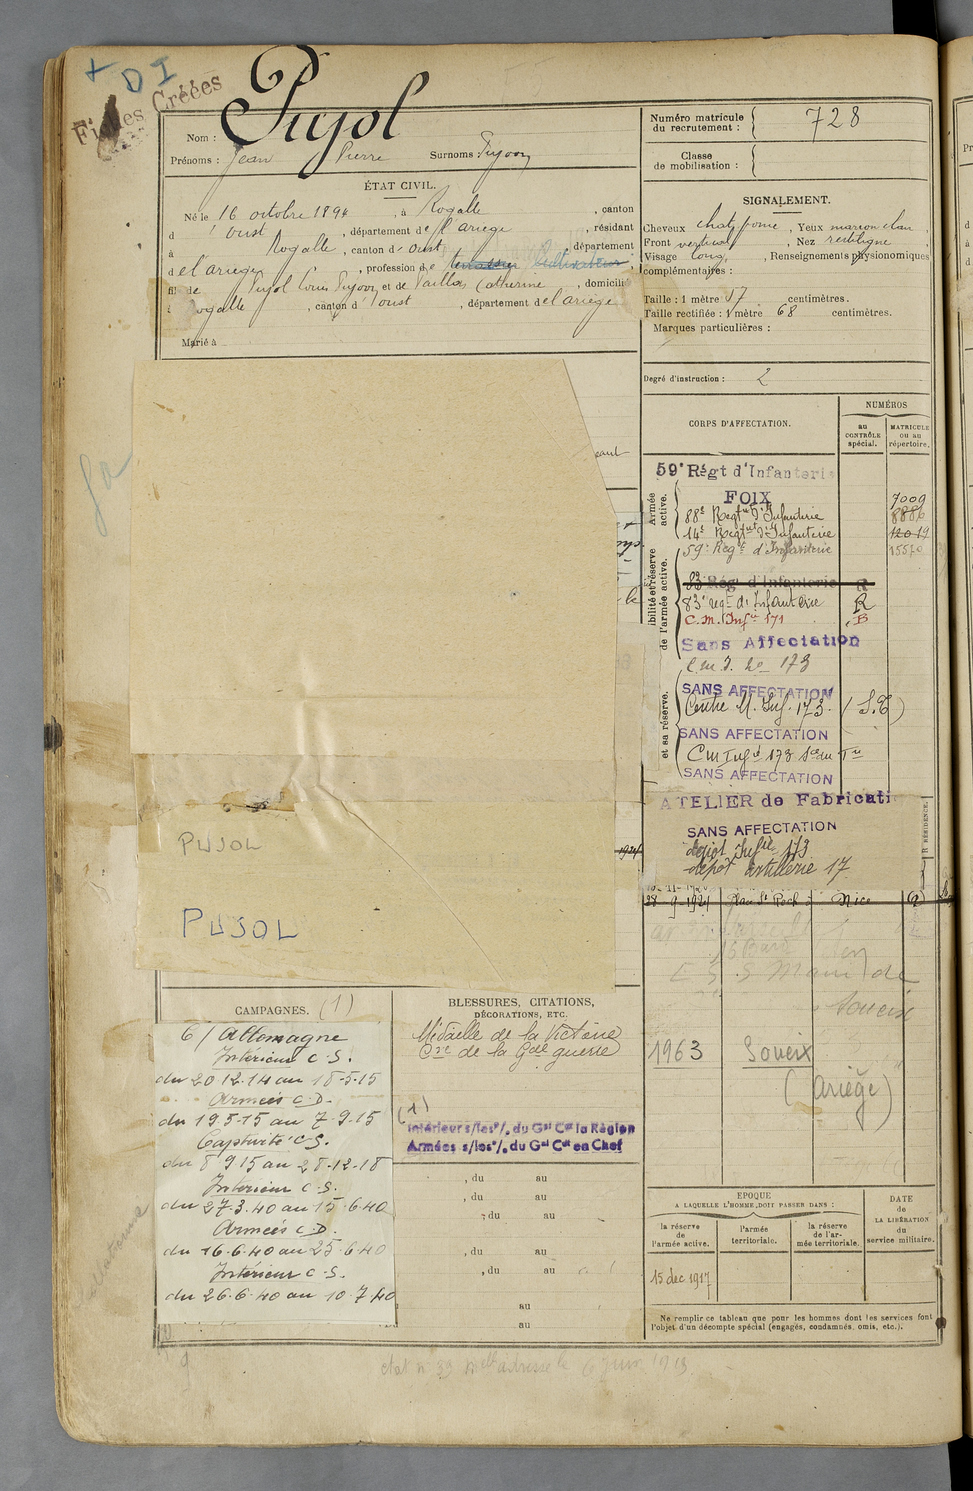 + D I
Fiches Créées
Pujol
Nom :
Prénoms : Jean Pierre Surnoms Pujoou
ÉTAT CIVIL.
Né le 16 octobre 1894, à Rogalle, canton
d'Oust, département de l'ariège, résidant
à Rogalle, canton d'Oust, département
de l'ariège, profession de terrassier Cultivateur
fils de Pujol Louis Pujoou et de Paillas Catherine, domicilié
à Rogalle, canton d'oust, département de l'ariège
Marié à
PUJOL
PUJOL
1924
CAMPAGNES. (1)
C/ Allemagne
Intérieur C.S.
du 20.12.14 au 18-5-15
Armées C.D.
du 19.5.15 au 7.9.15
Captivité C.S.
du 8 9 15 au 28-12-18
Intérieur C.S.
du 27.3.40 au 15.6.40
Armées C.D.
du 16.6.40 au 25.6.40
Intérieur C.S.
du 26.6.40 au 10.7.40
BLESSURES, CITATIONS,
DÉCORATIONS, ETC.
Médaille de la Victoire
Cve de la Gde guerre
(1)
Intérieur s/les°/. du Gal Ct la Région
Armées s/les°/. du Gal Ct en Chef
, du au
, du au
, du au
, du au
, du au
au
au
Numéro matricule
du recrutement : 728
Classe
de mobilisation :
SIGNALEMENT.
Cheveux chat. foncé, Yeux marron clair,
Front vertical, Nez rectiligne,
Visage long, Renseignements physionomiques
complémentaires :
Taille : 1 mètre 57 centimètres.
Taille rectifiée : 1 mètre 68 centimètres.
Marques particulières :
Degré d'instruction : 2
CORPS D'AFFECTATION.
NUMÉROS
au
CONTRÔLE
spécial.
MATRICULE
ou au
répertoire.
Armée
active.
59e Régt d'Infanterie
FOIX 7009
88e Regt d'Infanterie 8886
14e Regt d'Infanterie 12019
59e Regt d'Infanterie 15570
ibilité et réserve
de l'armée active.
83 Régt d'Infanterie R
83e regt d'Infanterie R
C.M. Infie 171 B
Sans Affectation
C.m.I. no 173
et sa réserve.
SANS AFFECTATION
Centre M. Inf. 173. (S.T)
SANS AFFECTATION
C m Infie 173
SANS AFFECTATION
ATELIER de Fabricati
SANS AFFECTATION
dépôt Infie 173
dépôt artillerie 17
R RÉSIDENCE.
28-9-1924 Place St Roch Nice R
de
Soueix
1963 Soueix
(Ariège)
EPOQUE
A LAQUELLE L'HOMME DOIT PASSER DANS :
la réserve
de
l'armée active.
l'armée
territoriale.
la réserve
de l'ar-
mée territoriale.
DATE
de
LA LIBÉRATION
du
service militaire.
15 dec 1917
Ne remplir ce tableau que pour les hommes dont les services font
l'objet d'un décompte spécial (engagés, condamnés, omis, etc.).
9